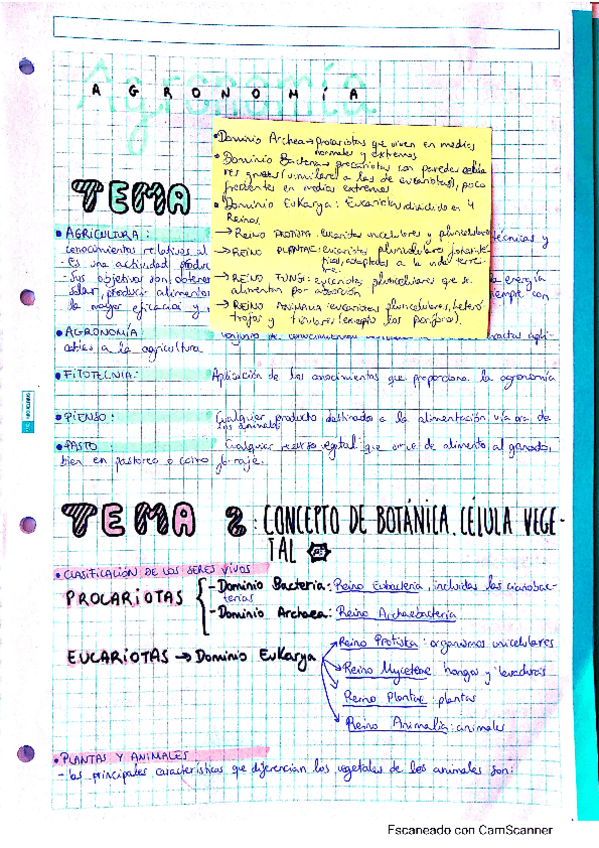 Agronomía
AGRONOMÍA
• Dominio Archea → procariotas que viven en medios
normales y extremos
• Dominio Bacteria → procariotas con paredes celula
res gruesas (similares a las de eucariotas), poco
frecuentes en medios extremos
• Dominio EuKarya: Eucariotas dividido en 4
Reinos
→ REINO PROTISTA: eucariotas unicelulares y pluricelulares
→ REINO PLANTAE: eucariotas pluricelulares fotosinté-
ticos, adaptados a la vida terres-
tre.
→ REINO FUNGI: eucariotas pluricelulares que se
alimentan por absorción
→ REINO ANIMALIA: eucariotas pluricelulares, heteró
trofos y tisulares (excepto los poríferos).
TEMA
• AGRICULTURA: técnicas y
conocimientos relativos al
- Es una actividad
Sus objetivos son: obtener la energía
solar, producir alimentos siempre con
la mayor eficacia y
• AGRONOMÍA: conjunto de conocimientos apli-
cables a la agricultura.
• FITOTECNIA: Aplicación de los conocimientos que proporciona la agronomía
• PIENSO: Cualquier producto destinado a la alimentación vía oral de
los animales
• PASTO: Cualquier recurso vegetal que sirve de alimento al ganado,
bien en pastoreo o como forraje.
TEMA 2: CONCEPTO DE BOTÁNICA. CÉLULA VEGE-
TAL
• CLASIFICACIÓN DE LOS SERES VIVOS
PROCARIOTAS
- Dominio Bacteria: Reino Eubacteria, incluidas las cianobac-
terias
- Dominio Archaea: Reino Archaebacteria
EUCARIOTAS → Dominio EuKarya
Reino Protista: organismos unicelulares
Reino Myceteae: hongos y levaduras
Reino Plantae: plantas
Reino Animalia: animales
• PLANTAS Y ANIMALES:
- las principales características que diferencian los vegetales de los animales son:
Escaneado con CamScanner